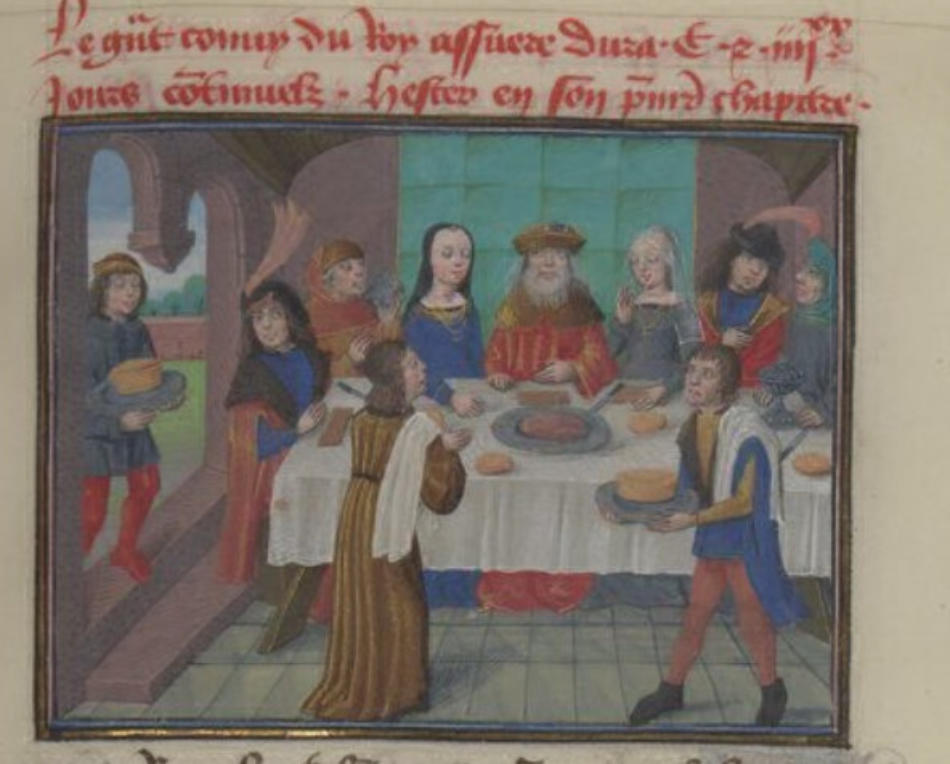 Le gãt conuy du Roy assuere dura · C · ⁊ · iiijˣˣ
Jours cõtinuelz · hester en son p̃mr̃ chapitre ·